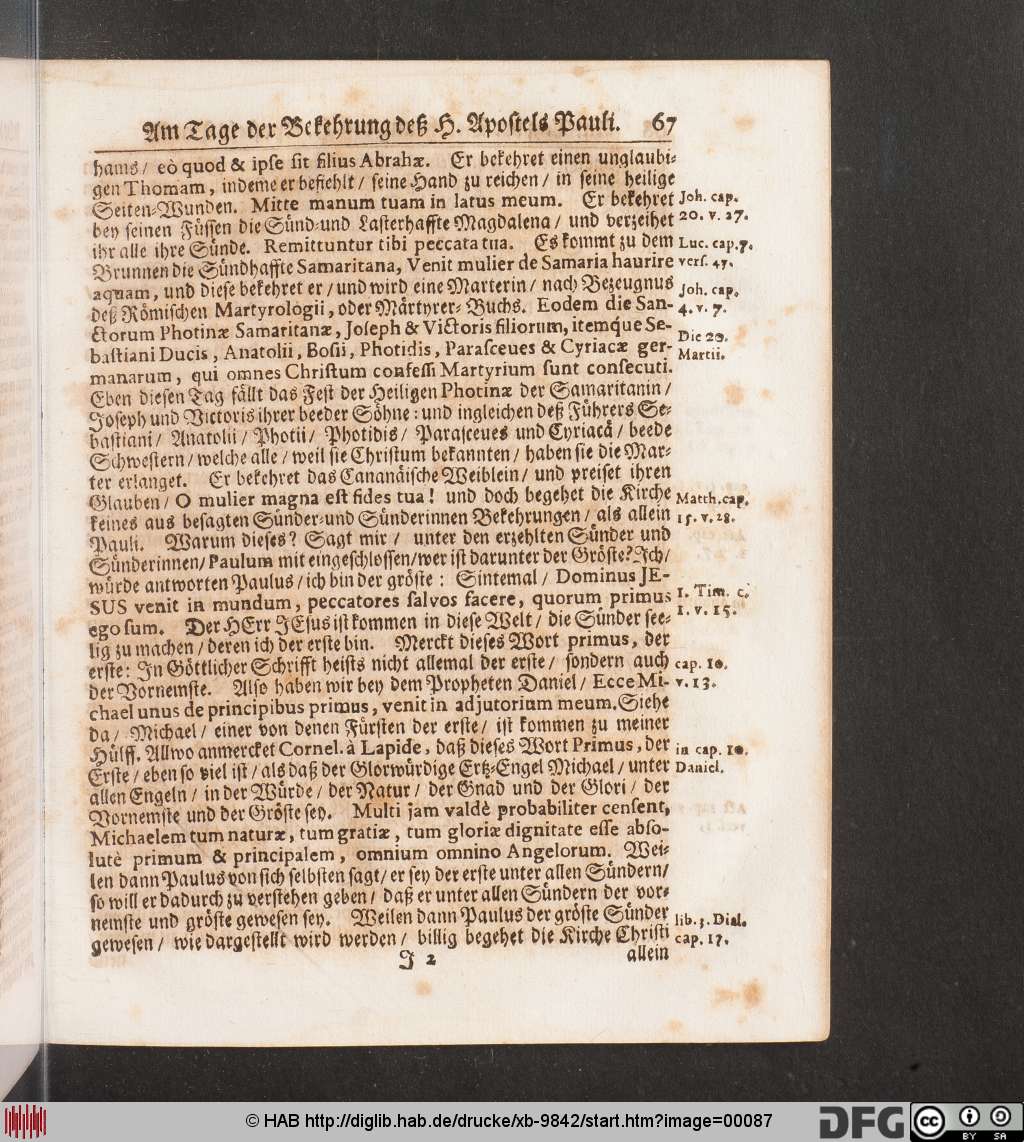 Am Tage der Bekehrung deß H. Apostels Pauli. 67
hams / eò quod & ipse sit filius Abrahæ. Er bekehret einen unglaubi-
gen Thomam, indeme er befiehlt / seine Hand zu reichen / in seine heilige
Seiten-Wunden. Mitte manum tuam in latus meum. Er bekehret
Joh. cap.
bey seinen Füssen die Sünd-und Lasterhaffte Magdalena / und verzeihet
20. v. 27.
ihr alle ihre Sünde. Remittuntur tibi peccata tua. Es kommt zu dem
Luc. cap. 7.
Brunnen die Sündhaffte Samaritana, Venit mulier de Samaria haurire
vers. 47.
aquam, und diese bekehret er / und wird eine Marterin / nach Bezeugnus
Joh. cap.
deß Römischen Martyrologii, oder Märtyrer-Buchs. Eodem die San-
4. v. 7.
ctorum Photinæ Samaritanæ, Joseph & Victoris filiorum, itemque Se-
Die 20.
bastiani Ducis, Anatolii, Bosii, Photidis, Parasceues & Cyriacæ ger-
Martii.
manarum, qui omnes Christum confessi Martyrium sunt consecuti.
Eben diesen Tag fällt das Fest der Heiligen Photinæ der Samaritanin /
Joseph und Victoris ihrer beeder Söhne: und ingleichen deß Führers Se-
bastiani / Anatolii / Photii / Photidis / Parasceues und Cyriacä / beede
Schwestern / welche alle / weil sie Christum bekannten / haben sie die Mar-
ter erlanget. Er bekehret das Cananäische Weiblein / und preiset ihren
Glauben / O mulier magna est fides tua! und doch begehet die Kirche
Matth. cap.
keines aus besagten Sünder-und Sünderinnen Bekehrungen / als allein
15. v. 28.
Pauli. Warum dieses? Sagt mir / unter den erzehlten Sünder und
Sünderinnen / Paulum mit eingeschlossen / wer ist darunter der Gröste? Ich /
würde antworten Paulus / ich bin der gröste: Sintemal / Dominus JE-
SUS venit in mundum, peccatores salvos facere, quorum primus
1. Tim. c.
ego sum. Der HErr JEsus ist kommen in diese Welt / die Sünder see-
1. v. 15.
lig zu machen / deren ich der erste bin. Merckt dieses Wort primus, der
erste: In Göttlicher Schrifft heists nicht allemal der erste / sondern auch
cap. 10.
der Vornemste. Also haben wir bey dem Propheten Daniel / Ecce Mi-
v. 13.
chael unus de principibus primus, venit in adjutorium meum. Siehe
da / Michael / einer von denen Fürsten der erste / ist kommen zu meiner
Hülff. Allwo anmercket Cornel. à Lapide, daß dieses Wort Primus, der
in cap. 10.
Erste / eben so viel ist / als daß der Glorwürdige Ertz-Engel Michael / unter
Daniel.
allen Engeln / in der Würde / der Natur / der Gnad und der Glori / der
Vornemste und der Gröste sey. Multi jam valdè probabiliter censent,
Michaelem tum naturæ, tum gratiæ, tum gloriæ dignitate esse abso-
lutè primum & principalem, omnium omnino Angelorum. Wei-
len dann Paulus von sich selbsten sagt / er sey der erste unter allen Sündern /
so will er dadurch zu verstehen geben / daß er unter allen Sündern der vor-
nemste und gröste gewesen sey. Weilen dann Paulus der gröste Sünder
lib. 3. Dial.
gewesen / wie dargestellt wird werden / billig begehet die Kirche Christi
cap. 17.
J 2 allein
© HAB http://diglib.hab.de/drucke/xb-9842/start.htm?image=00087
DFG cc BY SA